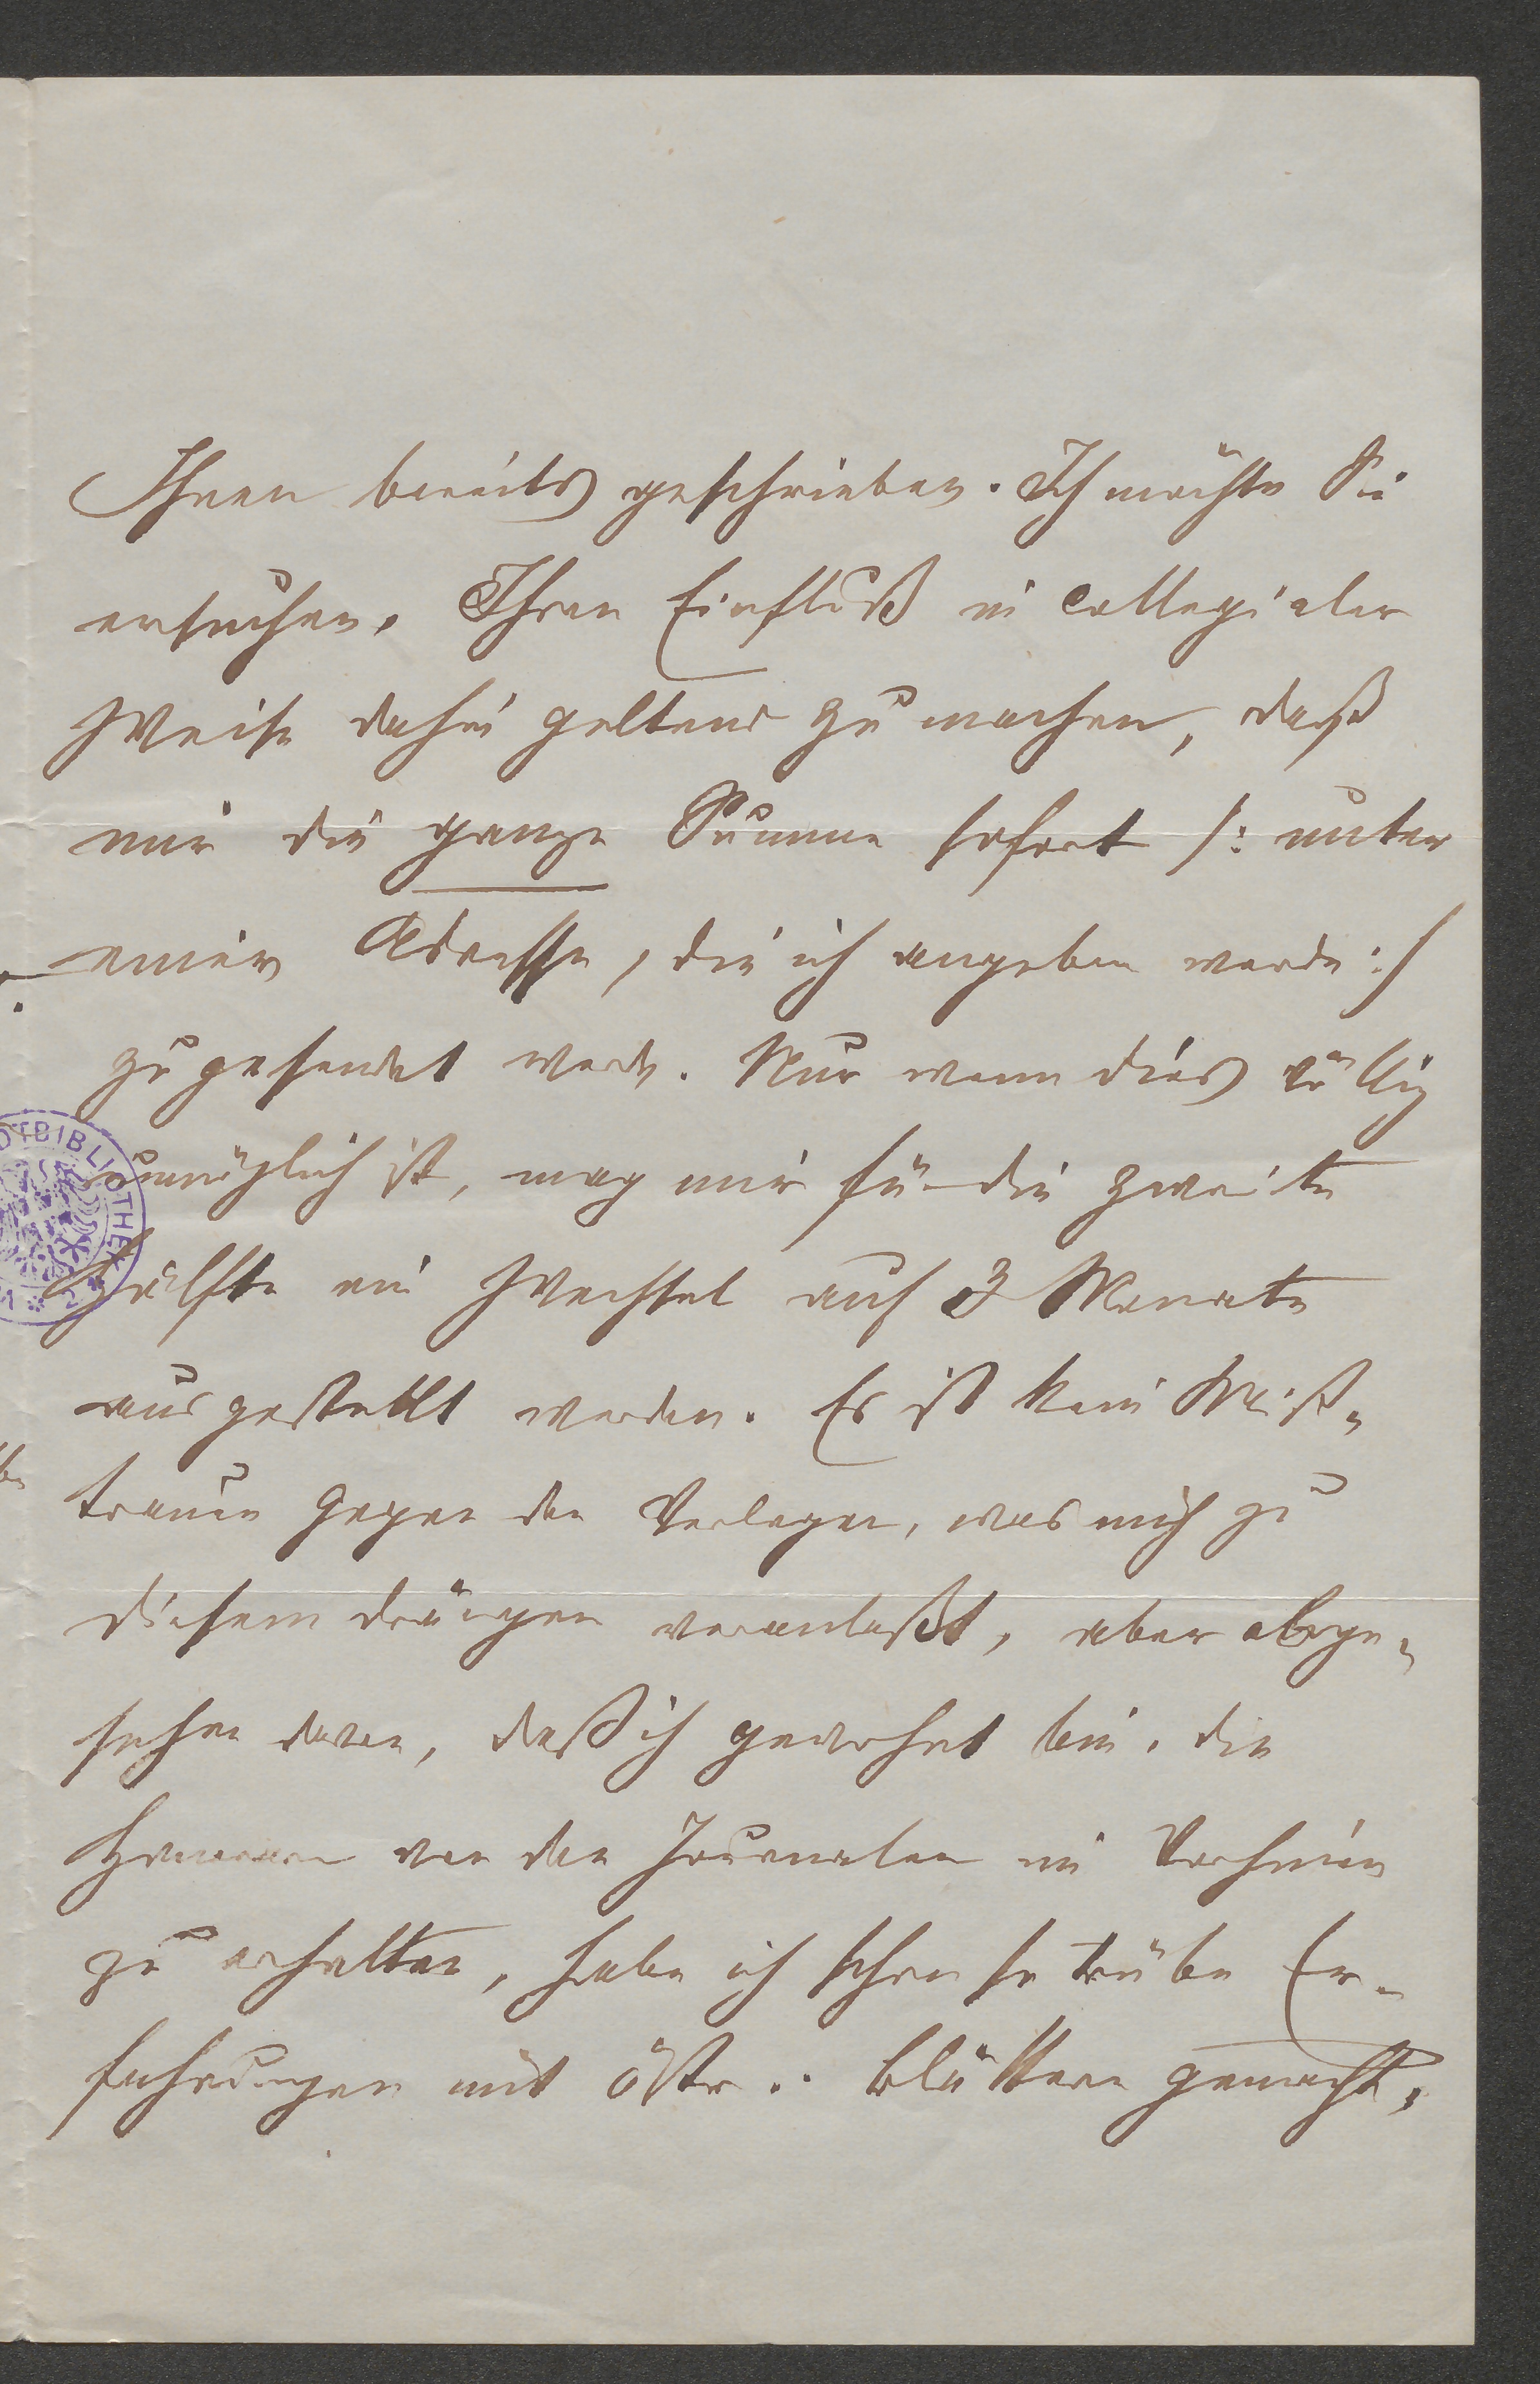 Ihnen bereits geschrieben. Ich möchte Sie
ersuchen, Ihren Einfluß in collegialer
Weise dahin geltend zu machen, daß
mir die ganze Summe sofort /: unter
einer Adresse, die ich angeben werde :/
zugesendet werde. Nur wenn dies völlig
unmöglich ist, mag mir für die zweite
Hälfte ein Wechsel auf 3 Monate
ausgestellt werden. Es ist kein Miß-
trauen gegen den Verleger, was mich zu
diesem drängen veranlaßt, aber abge-
sehen davon, daß ich gewohnt bin, die
Honorare von den Journalen im Vorhinein
zu erhalten, habe ich schon so trübe Er-
fahrungen mit östr.. Blättern gemacht,
OTBIBLIOTHEK